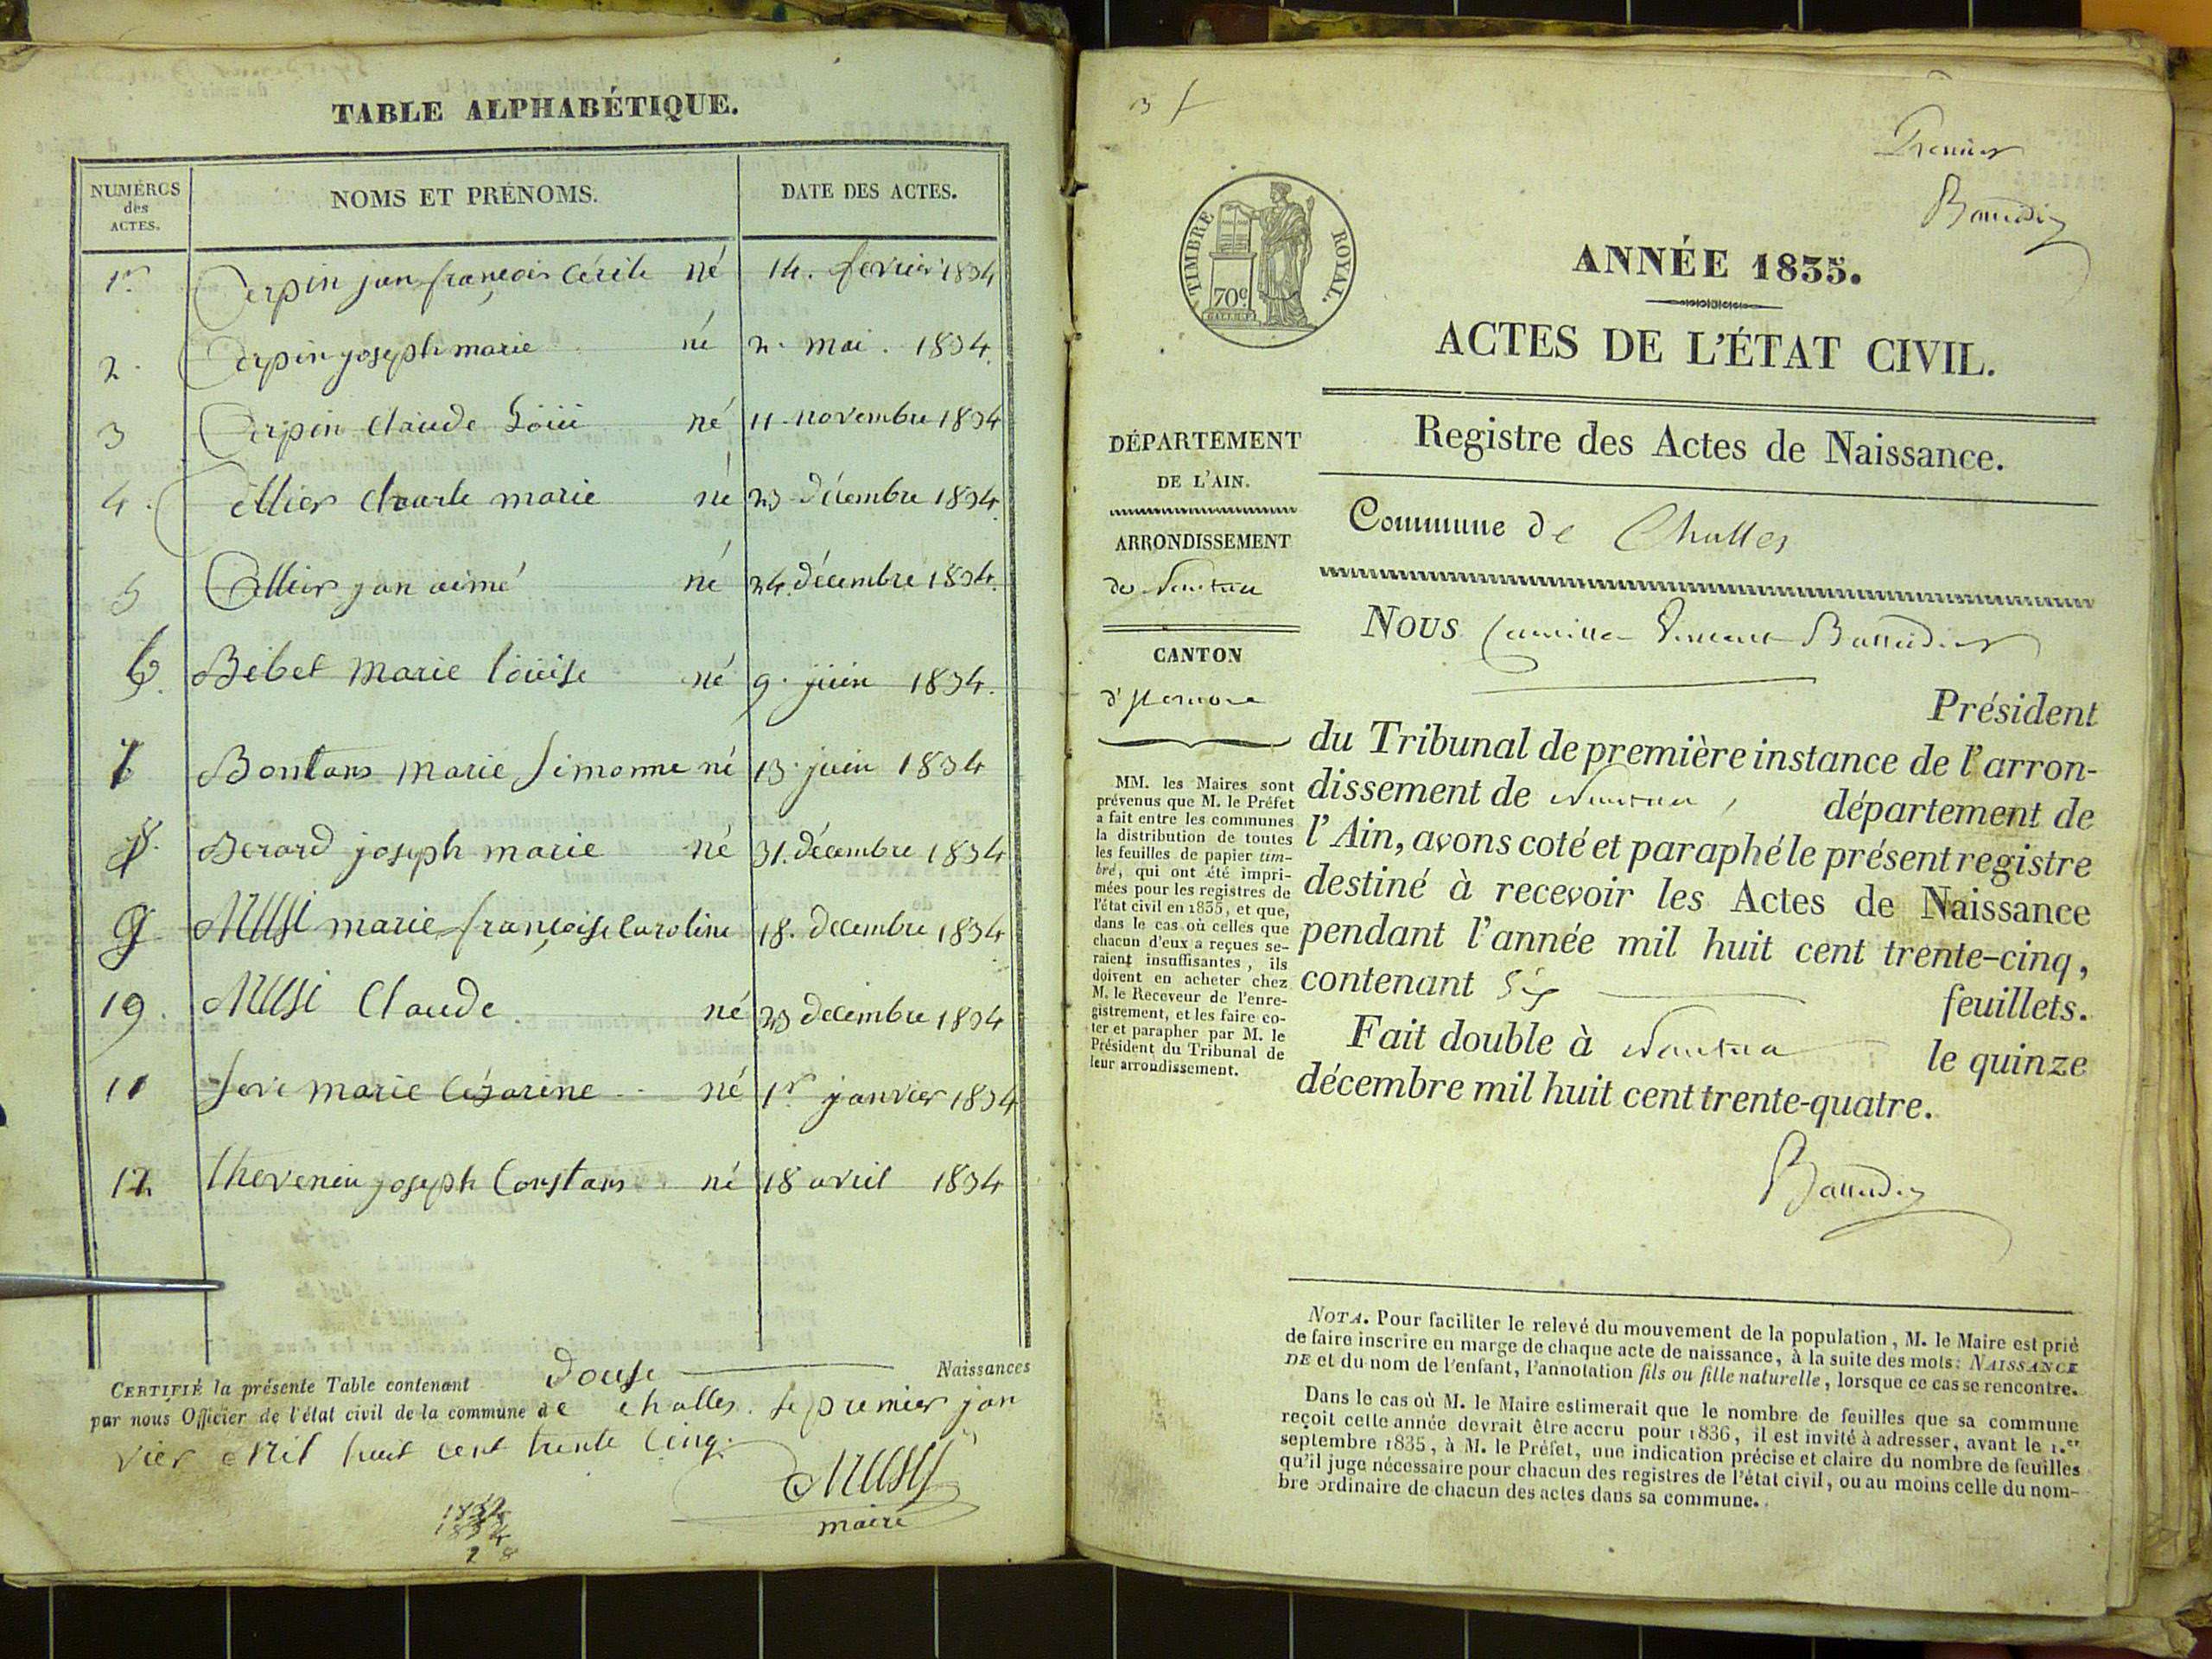 TABLE ALPHABÉTIQUE.
NUMÉROS des ACTES. NOMS ET PRÉNOMS. DATE DES ACTES.
1r. jan françois Cécile né 14. fevrier 1834
2. joseph marie né 2. mai. 1834.
3 Claude né 11 novembre 1834
4. marie né 23 décembre 1834.
5 jan aimé né 24. décembre 1834.
6. Bébet marie né 9. juin 1834.
7 Bontans marie Simonne né 13. juin 1834
8. Berard joseph marie né 31. décembre 1834
9 marie françoise Caroline 18. decembre 1834
19. Claude. né 23 decembre 1834
11 marie Cézarine né 1r janvier 1834
12 thevenin joseph Constans né 18 avril 1834
CERTIFIÉ la présente Table contenant douse Naissances
par nous Officier de l'état civil de la commune de challes. le premier jan
vier Mil huit cent trente Cinq.
maire
Premier
ANNÉE 1835.
TIMBRE ROYAL.
70c.
ACTES DE L'ÉTAT CIVIL.
Registre des Actes de Naissance.
DÉPARTEMENT
DE L'AIN.
ARRONDISSEMENT
de Nantua
CANTON
d'
MM. les Maires sont
prévenus que M. le Préfet
a fait entre les communes
la distribution de toutes
les feuilles de papier tim-
bré, qui ont été impri-
mées pour les registres de
l'état civil en 1835, et que,
dans le cas où celles que
chacun d'eux a reçues se-
raient insuffisantes, ils
doivent en acheter chez
M. le Receveur de l'enre-
gistrement, et les faire co-
ter et parapher par M. le
Président du Tribunal de
leur arrondissement.
Commune de Challes
Nous Camille Vincent
Président
du Tribunal de première instance de l'arron-
dissement de Nantua, département de
l'Ain, avons coté et paraphé le présent registre
destiné à recevoir les Actes de Naissance
pendant l'année mil huit cent trente-cinq,
contenant Six feuillets.
Fait double à Nantua le quinze
décembre mil huit cent trente-quatre.
NOTA. Pour faciliter le relevé du mouvement de la population, M. le Maire est prié
de faire inscrire en marge de chaque acte de naissance, à la suite des mots: NAISSANCE
DE et du nom de l'enfant, l'annotation fils ou fille naturelle, lorsque ce cas se rencontre.
Dans le cas où M. le Maire estimerait que le nombre de feuilles que sa commune
reçoit cette année devrait être accru pour 1836, il est invité à adresser, avant le 1.er
septembre 1835, à M. le Préfet, une indication précise et claire du nombre de feuilles
qu'il juge nécessaire pour chacun des registres de l'état civil, ou au moins celle du nom-
bre ordinaire de chacun des actes dans sa commune.